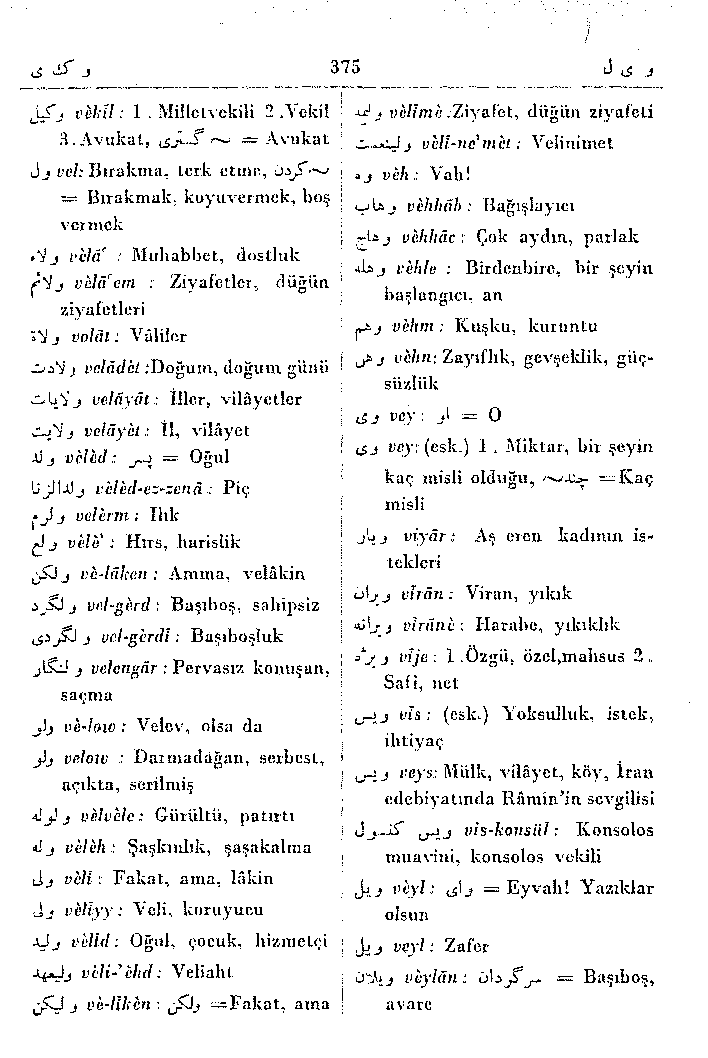 و ک ی 375 و ی ل
وکیل vèkîl: 1. Milletvekili 2.Vekil
3.Avukat, ~ گستری = Avukat
ول vel: Bırakma, terk etme, ~ کردن
= Bırakmak, koyuvermek, boş
vermek
ولاء velâʿ : Muhabbet, dostluk
ولائم velâʿem : Ziyafetler, düğün
ziyafetleri
ولاة volât: Vâliler
ولادت velâdèt:Doğum, doğum günü
ولایات velâyât: İller, vilâyetler
ولایت velâyèt: İl, vilâyet
ولد vèlèd: پسر = Oğul
ولدالزنا vèlèd-ez-zenâ: Piç
ولرم velèrm: Ilık
ولع vèlèʿ: Hırs, harislik
ولکن vè-lâken: Amma, velâkin
ولگرد vel-gèrd: Başıboş, sahipsiz
ولگردی vel-gèrdî: Başıboşluk
ولنگار velengâr: Pervasız konuşan,
saçma
ولو vè-low: Velev, olsa da
ولو velow : Darmadağan, serbest,
açıkta, serilmiş
ولوله vèlvèle: Gürültü, patırtı
وله vèlèh: Şaşkınlık, şaşakalma
ولی vèlî: Fakat, ama, lâkin
ولی vèlîyy: Veli, koruyucu
ولید vèlîd: Oğul, çocuk, hizmetçi
ولیعهد vèlî-'èhd: Veliaht
ولیکن vè-lîkèn: ولکن =Fakat, ama
ولیمه vèlîmè:Ziyafet, düğün ziyafeti
ولینعمت vèlî-ne'mèt: Velinimet
وه vèh: Vah!
وهاب vèhhâb: Bağışlayıcı
وهاج vèhhâc: Çok aydın, parlak
وهله vèhle : Birdenbire, bir şeyin
başlangıcı, an
وهم vèhm: Kuşku, kuruntu
وهن vèhn: Zayıflık, gevşeklik, güç-
süzlük
وی vey: او = O
وی vey: (esk.) 1. Miktar, bir şeyin
kaç misli olduğu, ~ چند =Kaç
misli
ویار viyâr: Aş eren kadının is-
tekleri
ویران vîrân: Viran, yıkık
ویرانه vîrânè: Harabe, yıkıklık
ویژه vîje: 1.Özgü, özel,mahsus 2.
Safi, net
ویس vîs: (esk.) Yoksulluk, istek,
ihtiyaç
ویس veys: Mülk, vilâyet, köy, İran
edebiyatında Râmîn'in sevgilisi
ویس کنسول vis-konsül: Konsolos
muavini, konsolos vekili
ویل vèyl: وای = Eyvah! Yazıklar
olsun
ویل veyl: Zafer
ویلان vèylân: سرگردان = Başıboş,
avare